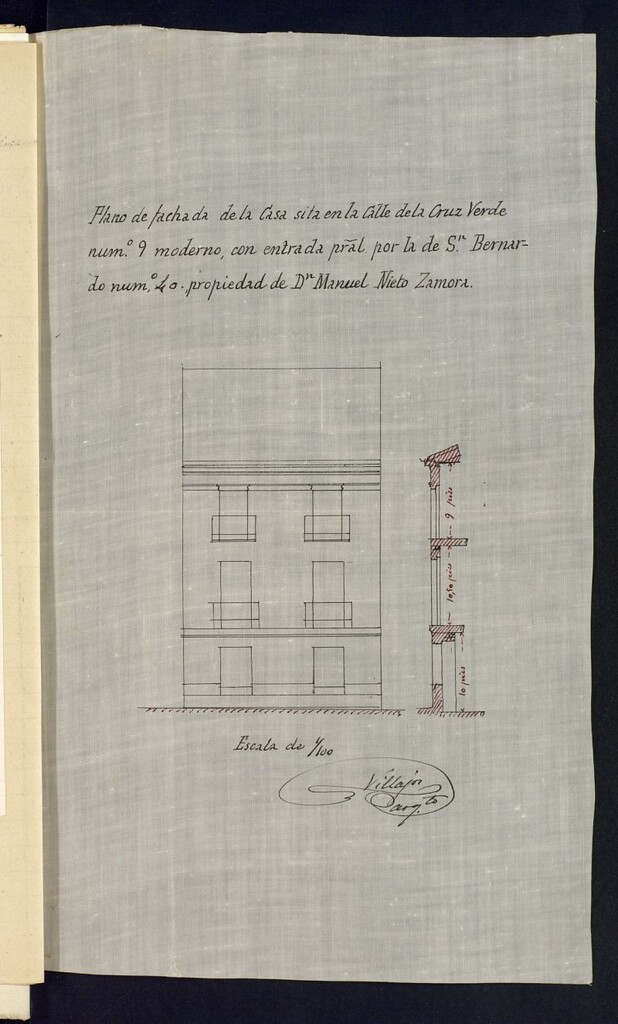 Plano de fachada de la Casa sita en la Calle de la Cruz Verde
num.º 9 moderno, con entrada pr̃al. por la de S.ⁿ Bernar-
do num.º 40. propiedad de Dⁿ Manuel Nieto Zamora.
9 piés
10,50 piés
10 piés
Escala de 1/100
Villajos